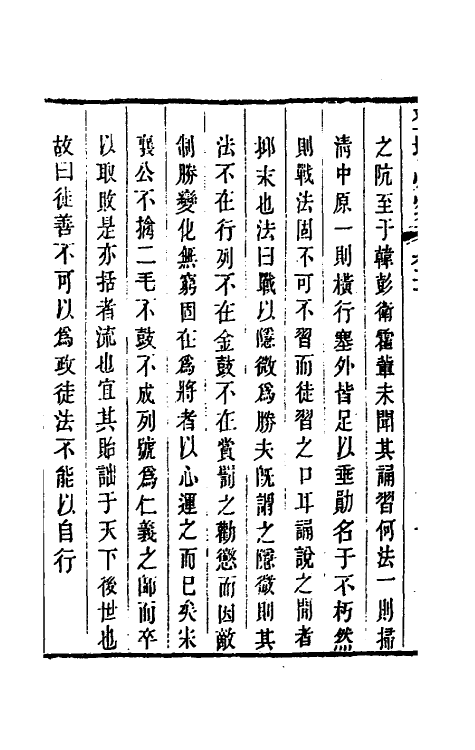 之阬至于韓彭衛霍輩未聞其誦習何法一則掃
清中原一則橫行塞外皆足以垂勛名于不朽然
則戰法固不可不習而徒習之口耳誦說之間者
抑末也法曰戰以隱微為勝夫既謂之隱微則其
法不在行列不在金鼓不在賞罰之勸懲而因敵
制勝變化無窮固在為將者以心運之而已矣宋
襄公不擒二毛不鼓不成列號為仁義之師而卒
以取敗是亦括者流也宜其貽詘于天下後世也
故曰徒善不可以為政徒法不能以自行